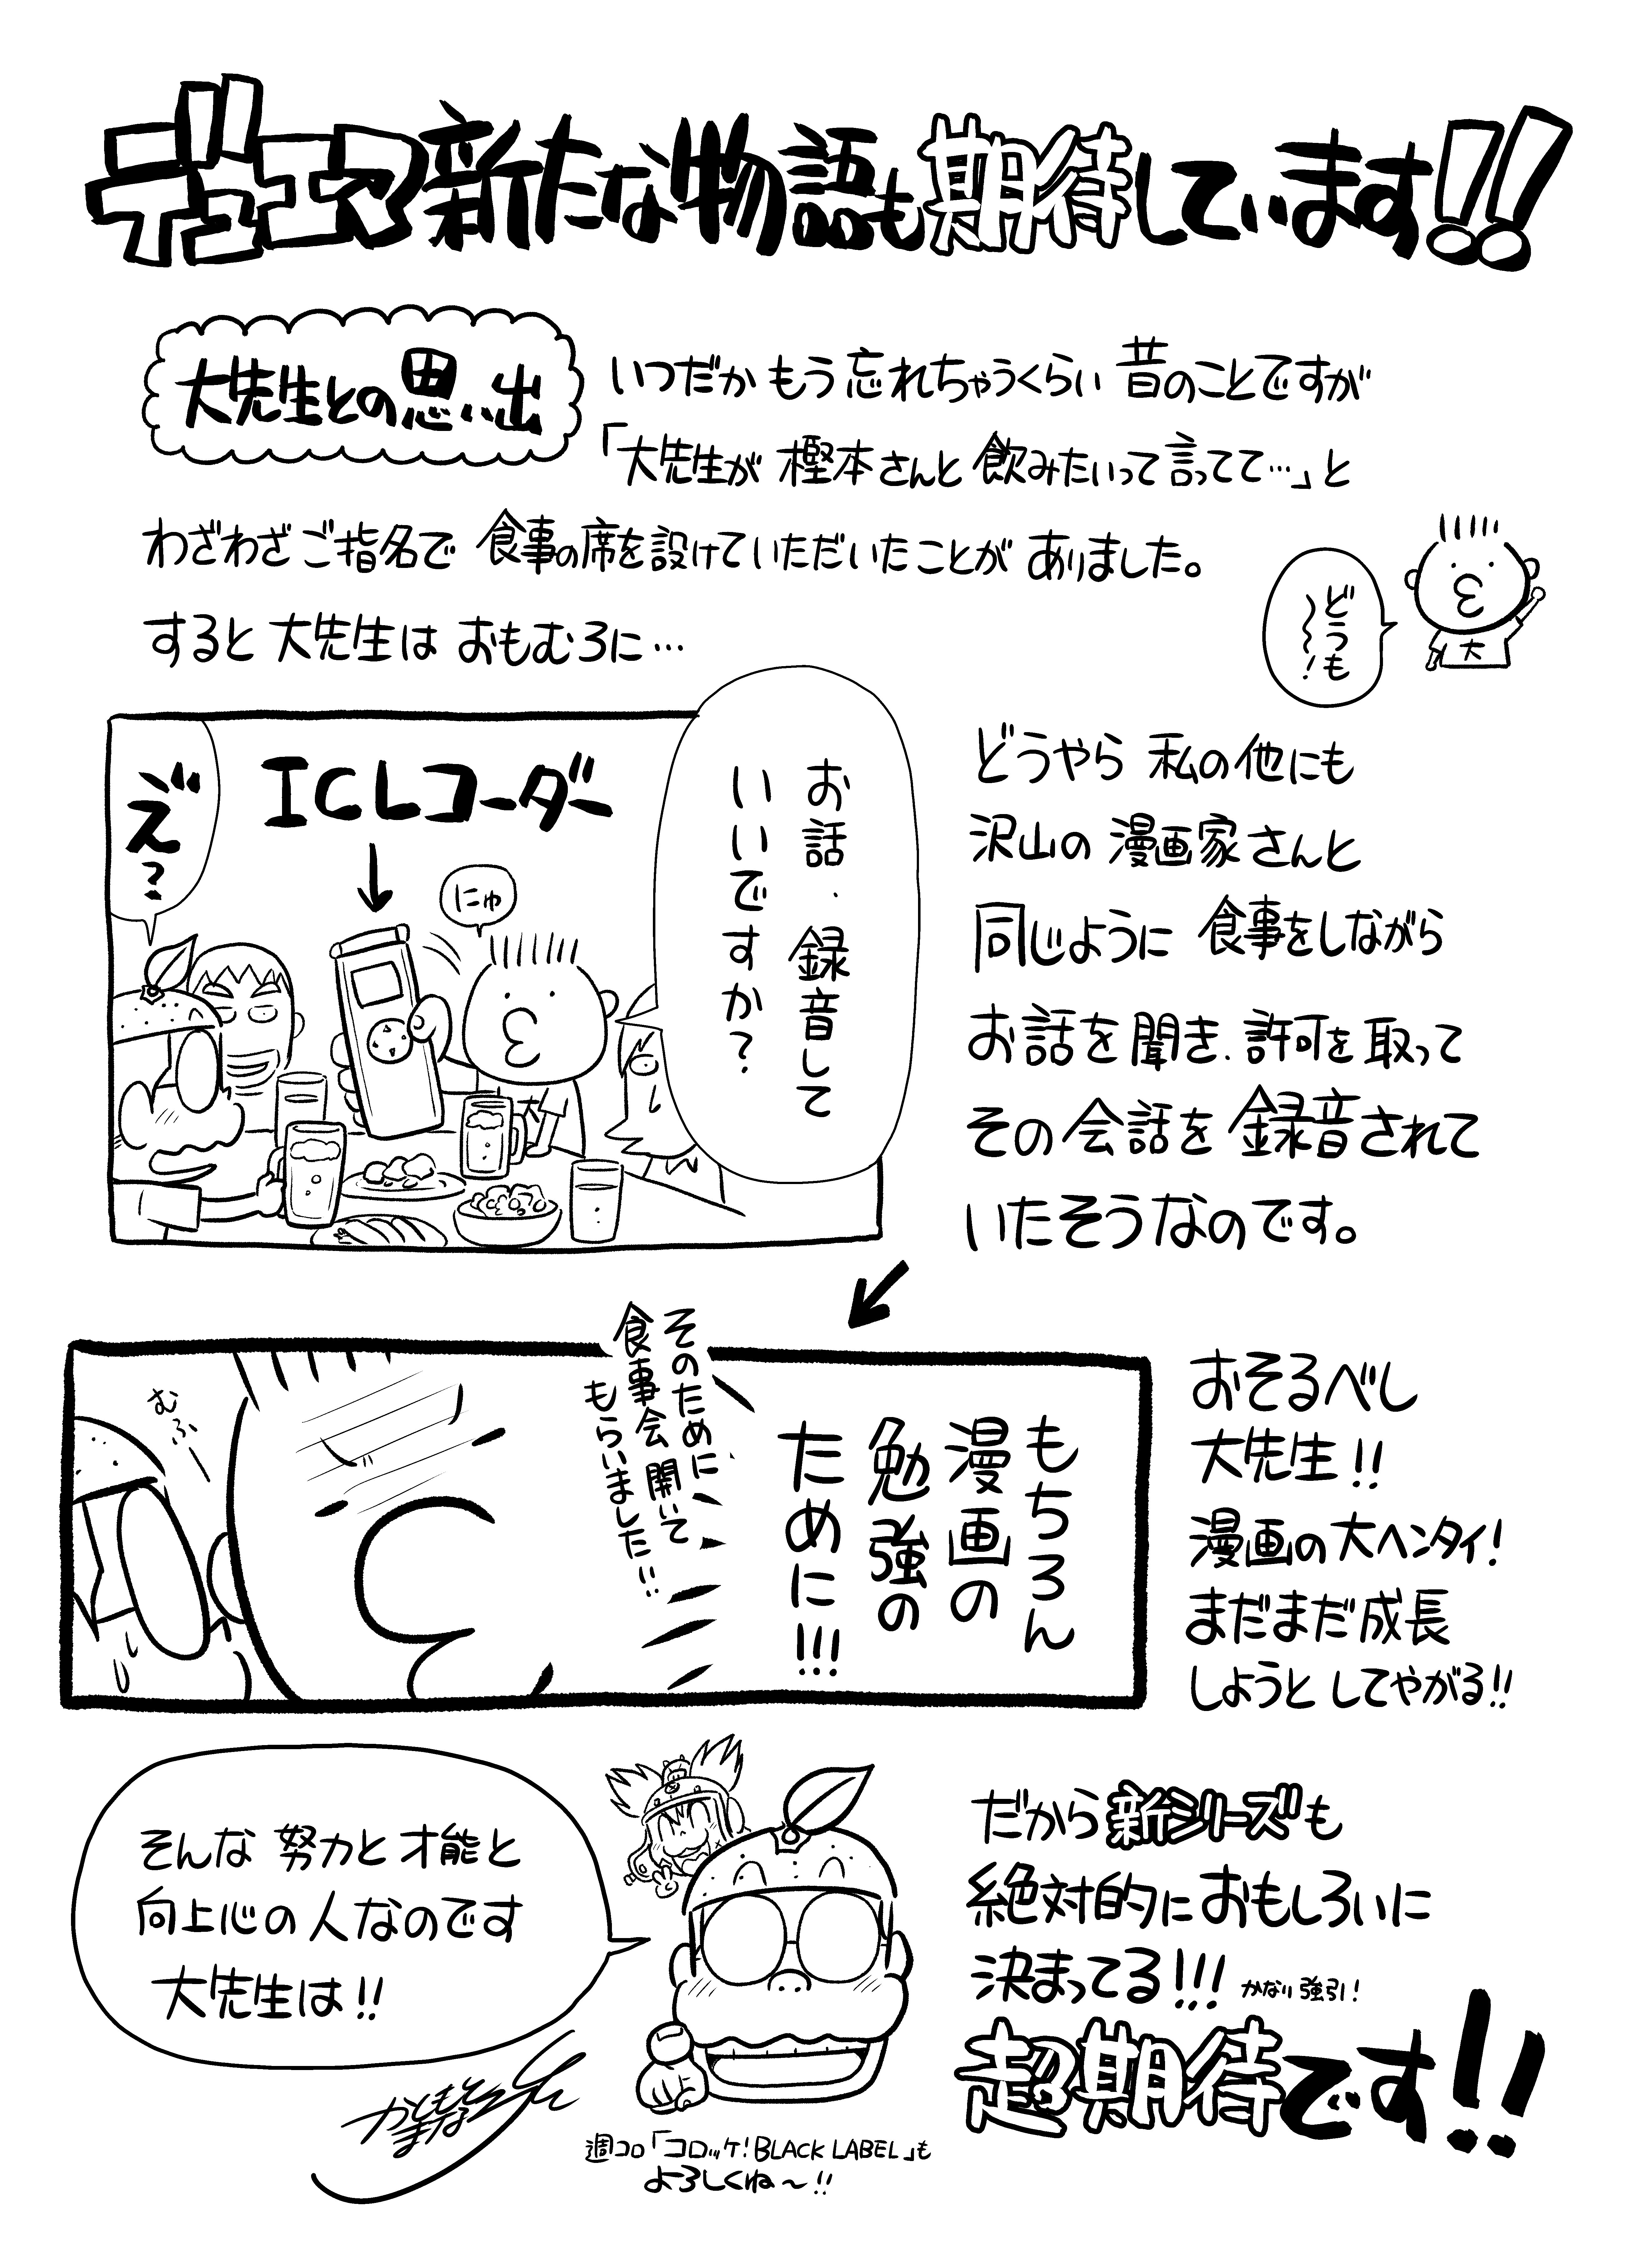 デュエマ新たな物語も期待しています!!
大先生との思い出
いつだか もう忘れちゃうくらい 昔のことですが
「大先生が 樫本さんと 飲みたいって言ってて…」と
わざわざご指名で 食事の席を設けていただいたことが ありました。
すると 大先生は おもむろに…
どうも
〜〜!
大
お話、録音して
いいですか?
ICレコーダー
にゅ
え゛?
どうやら 私の他にも
沢山の 漫画家さんと
同じように 食事をしながら
お話を聞き、許可を取って
その会話を 録音されて
いたそうなのです。
もちろん
漫画の
勉強の
ために!!!
そのために
食事会 開いて
もらいました!!
むふー
おそるべし
大先生!!
漫画の大ヘンタイ!
まだまだ成長
しようと してやがる!!
そんな 努力と才能と
向上心の人なのです
大先生は!!
だから新シリーズも
絶対的におもしろいに
決まってる!!! かなり強引!
超期待です!!
かしもとまなぶ
週コロ「コロッケ! BLACK LABEL」も
よろしくね〜!!